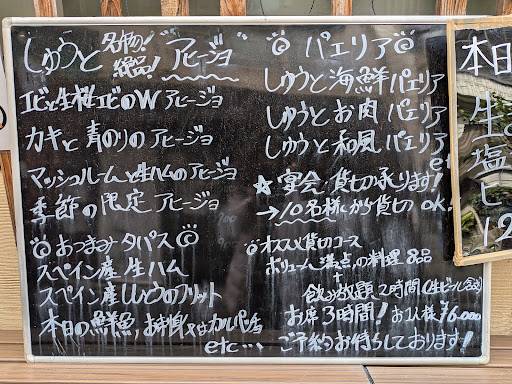 しゅうと 名物!絶品!"アヒージョ"
エビと生桜エビのW アヒージョ
カキと青のりのアヒージョ
マッシュルームと生ハムのアヒージョ
季節の限定アヒージョ
◎おつまみタパス◎
スペイン産生ハム
スペイン産しゅうとのフリット
本日の鮮魚、お刺身又はカルパッチョ
etc…
◎パエリア◎
しゅうと海鮮パエリア
しゅうとお肉パエリア
しゅうと和風パエリア
etc
★宴会、貸切り承ります!
→10名様から貸切りok!
◎オススメ貸切りコース
ボリューム満点の料理8品
+
飲み放題2時間(生ビール含む)
お席3時間!お1人様¥6.000
ご予約お待ちしております!
本日
生
塩
ヒ
12